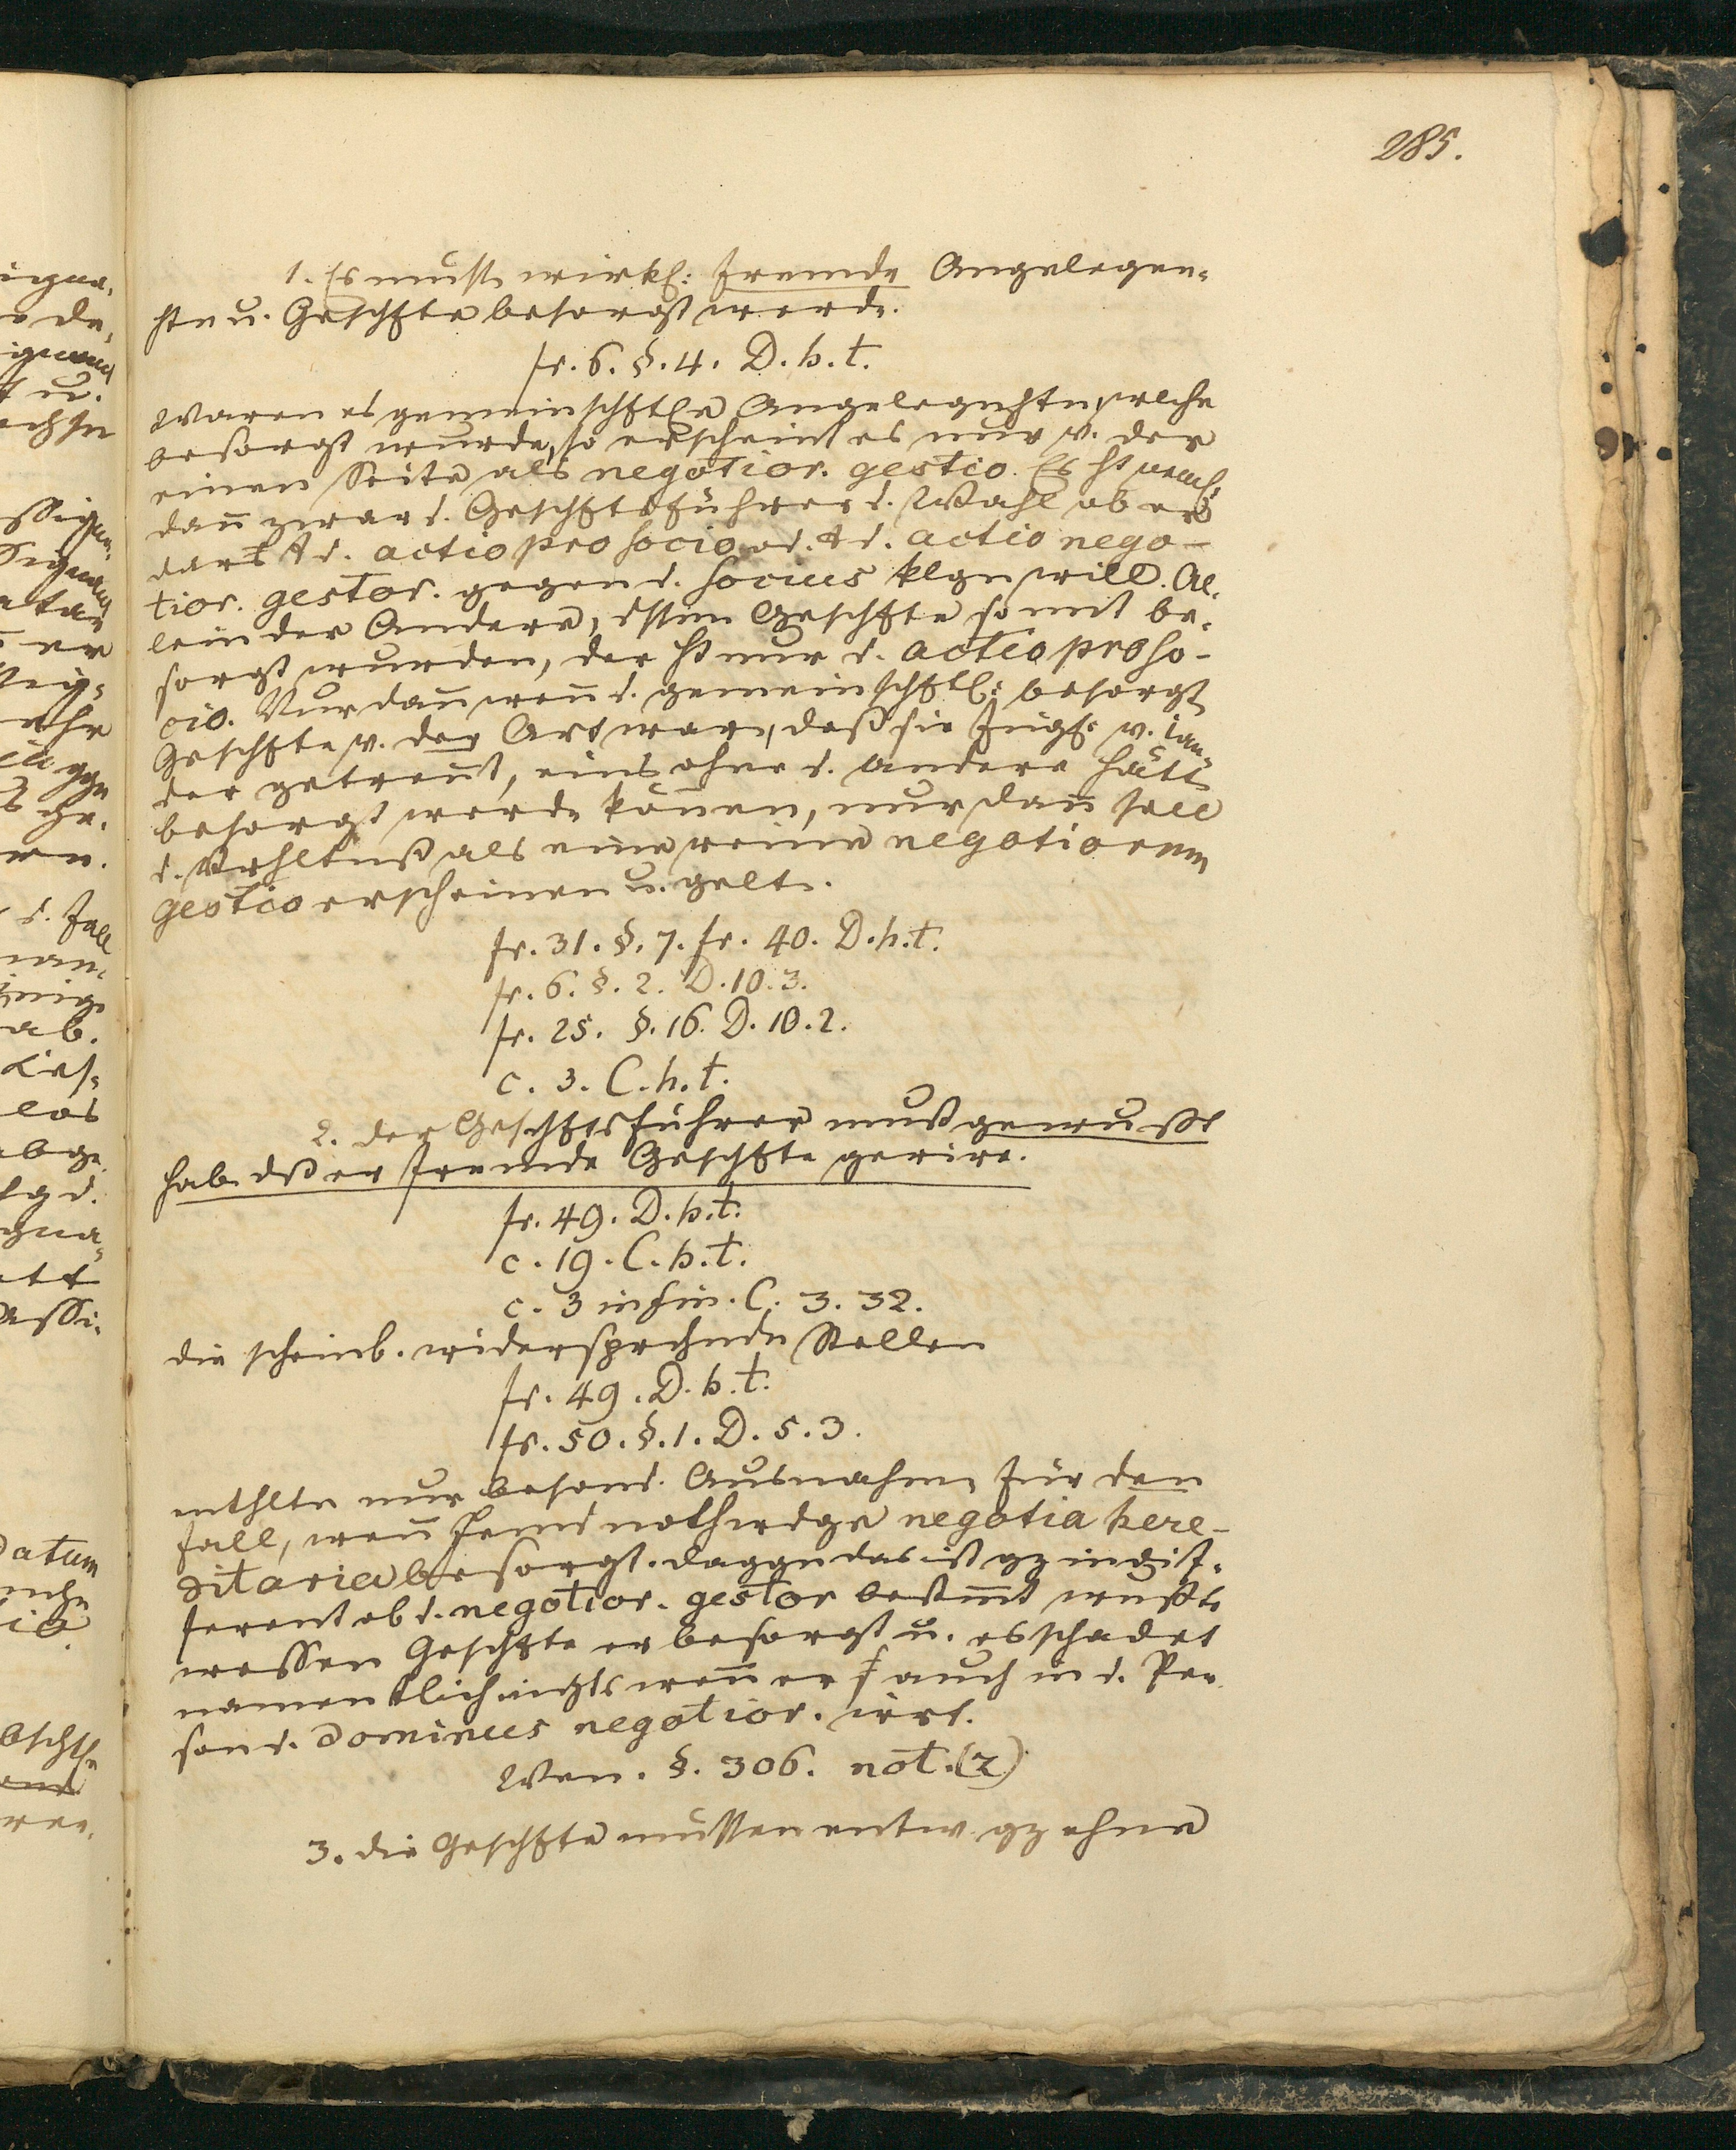 285.
1. Es muß wirkl: fremde Angelegen-
htn u. Geschfte besorgt werdn.
fr. 6. §. 4. D. h. t.
Waren es gemeinschftle Angelegnhtn, welche
besorgt wurdn, so erscheint es nur v. der
einen Seite als negotior. gestio. Es ht neml:
dañ zwar d. Geschftsführer d. Wahl ob er
d. actio pro socio od. d. actio nego-
tior. gestor. gegen d. socius klgn will. Al-
lein der Andere, dssen Geschfte so mit be-
sorgt wurden, der ht nur d. actio pro so-
cio. Nur dañ weñ d. gemeinschftl: besorgtn
Geschfte v. der Art warn, daß sie v. 1an-
der getrennt, eins ohne d. andere hätte
besorgt werdn köñen, nur dañ soll
d. Vrhltnß als eine reine negotiorum
gestio erscheinen u. geltn.
fr. 31. §. 7. fr. 40. D. h. t.
fr. 6. §. 2. D. 10. 3.
fr. 25. §. 16. D. 10. 2.
c. 3. C. h. t.
2. der Geschftsführer muß gewußt
habn dß er fremde Geschfte gerire.
fr. 49. D. h. t.
c. 19. C. h. t.
c. 3 in fin. C. 3. 32.
die scheinb. widersprchndn Stellen
fr. 49. D. h. t.
fr. 50. §. 1. D. 5. 3.
enthltn nur besond. Ausnahmn für den
Fall, weñ Jemd nothwdge negotia here-
ditaria besorgt. daggn das ist gz indif-
ferent ob d. negotior. gestor bestim̃t wußte
wessen Geschfte er besorgt u. es schadet
namentlich nichts weñ er s auch in d. Per-
son d. dominus negotior. irrt.
Wen. §. 306. not. (z)
3. die Geschfte müssen entw. gz ohne